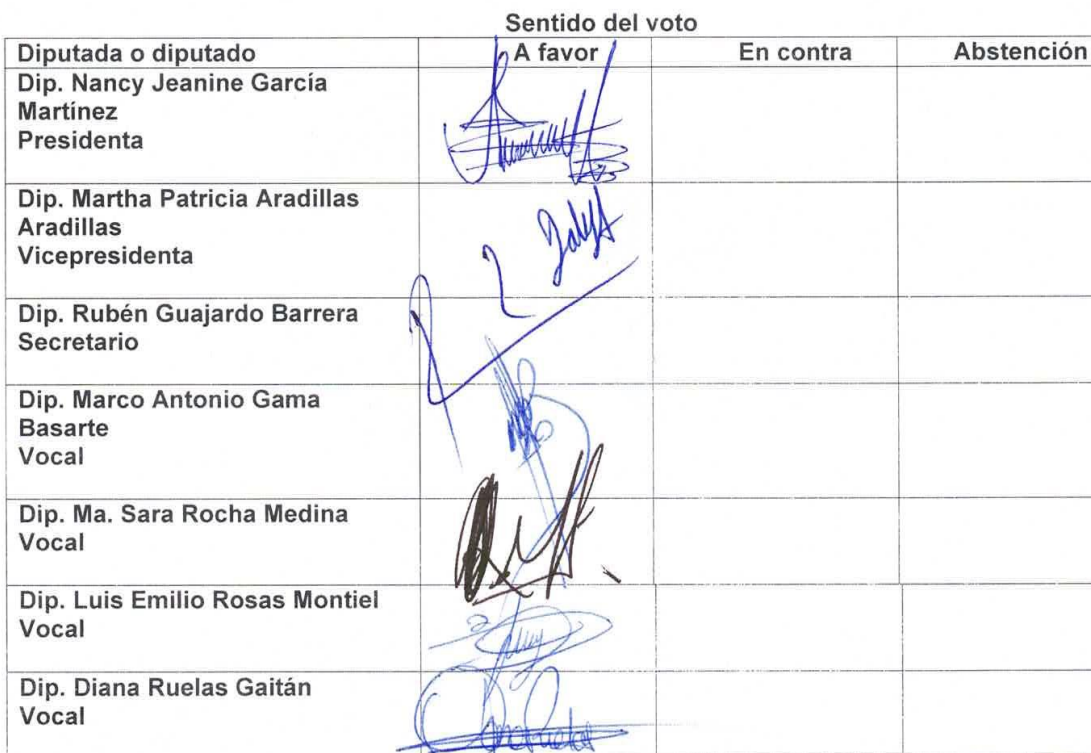 Sentido del voto
Diputada o diputado A favor En contra Abstención
Dip. Nancy Jeanine García
Martínez
Presidenta
Dip. Martha Patricia Aradillas
Aradillas
Vicepresidenta
Dip. Rubén Guajardo Barrera
Secretario
Dip. Marco Antonio Gama
Basarte
Vocal
Dip. Ma. Sara Rocha Medina
Vocal
Dip. Luis Emilio Rosas Montiel
Vocal
Dip. Diana Ruelas Gaitán
Vocal